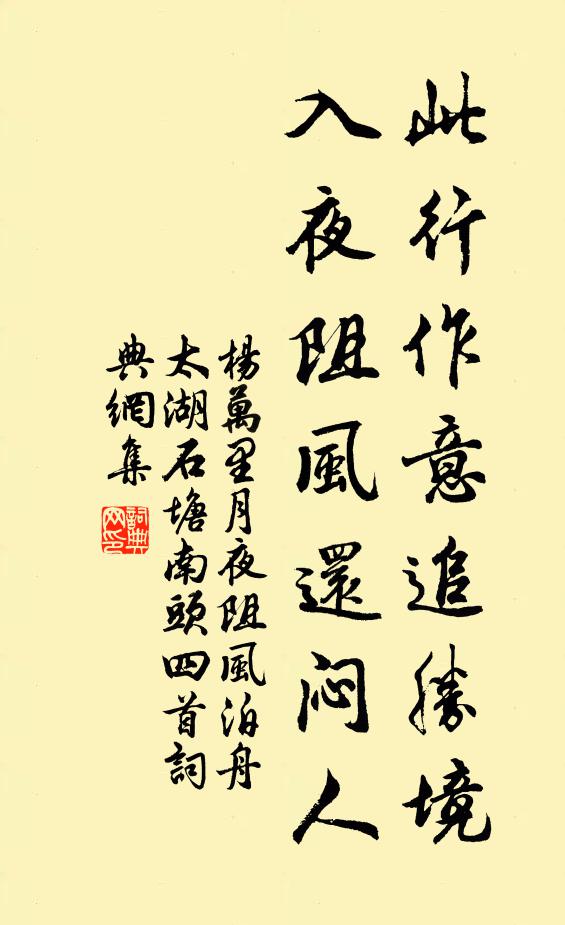 此行作意追勝境
入夜阻風還悶人
楊萬里月夜阻風泊舟
太湖石塘南頭四首詞
典網集
詞典
网印